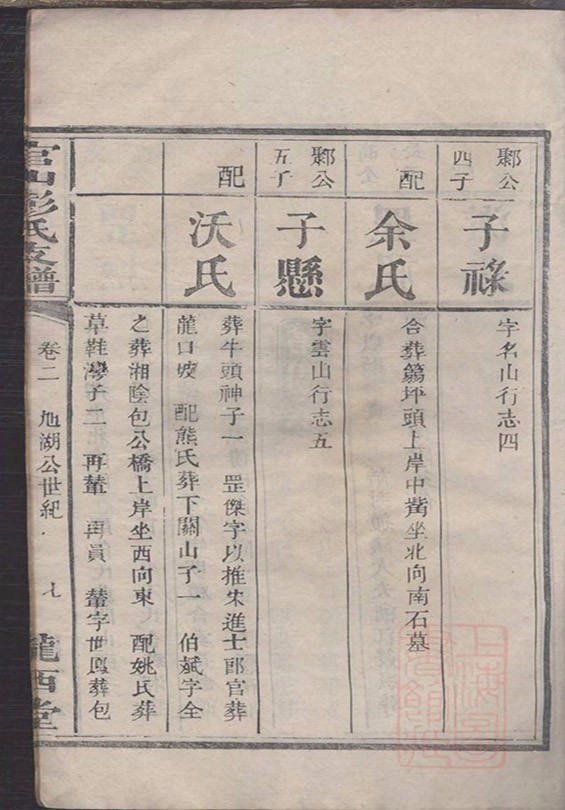 鄴公
四子
子祿
字名山行志四
配
余氏
合葬篛坪頭上岸中觜坐北向南石墓
鄴公
五子
子懸
字雲山行志五
配
沃氏
葬牛頭神子一 罡傑字以推宋進士郎官葬
龍口坡 配熊氏葬下關山子一 伯斌字全
之葬湘陰包公橋上岸坐西向東 配姚氏葬
草鞋灣子二 再輦 再員 輦字世鳳葬包
官山彭氏支譜
卷二 旭湖公世紀
七
隴西堂